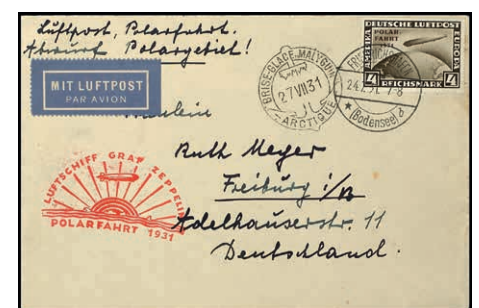 Luftpost, Polarfahrt.
Abwurf Polargebiet!
MIT LUFTPOST
PAR AVION
BRISE-GLACE "MALYGUIN"
27 VII 31
ARCTIQUE
24.7.31. 7-8
(Bodensee) d
DEUTSCHE LUFTPOST
POLAR-
FAHRT
1931
AMERIKA
EUROPA
4 REICHSMARK 4
Fräulein
Ruth Meyer
Freiburg i/B
Adelhauserstr. 11
Deutschland.
LUFTSCHIFF GRAF ZEPPELIN
POLARFAHRT 1931